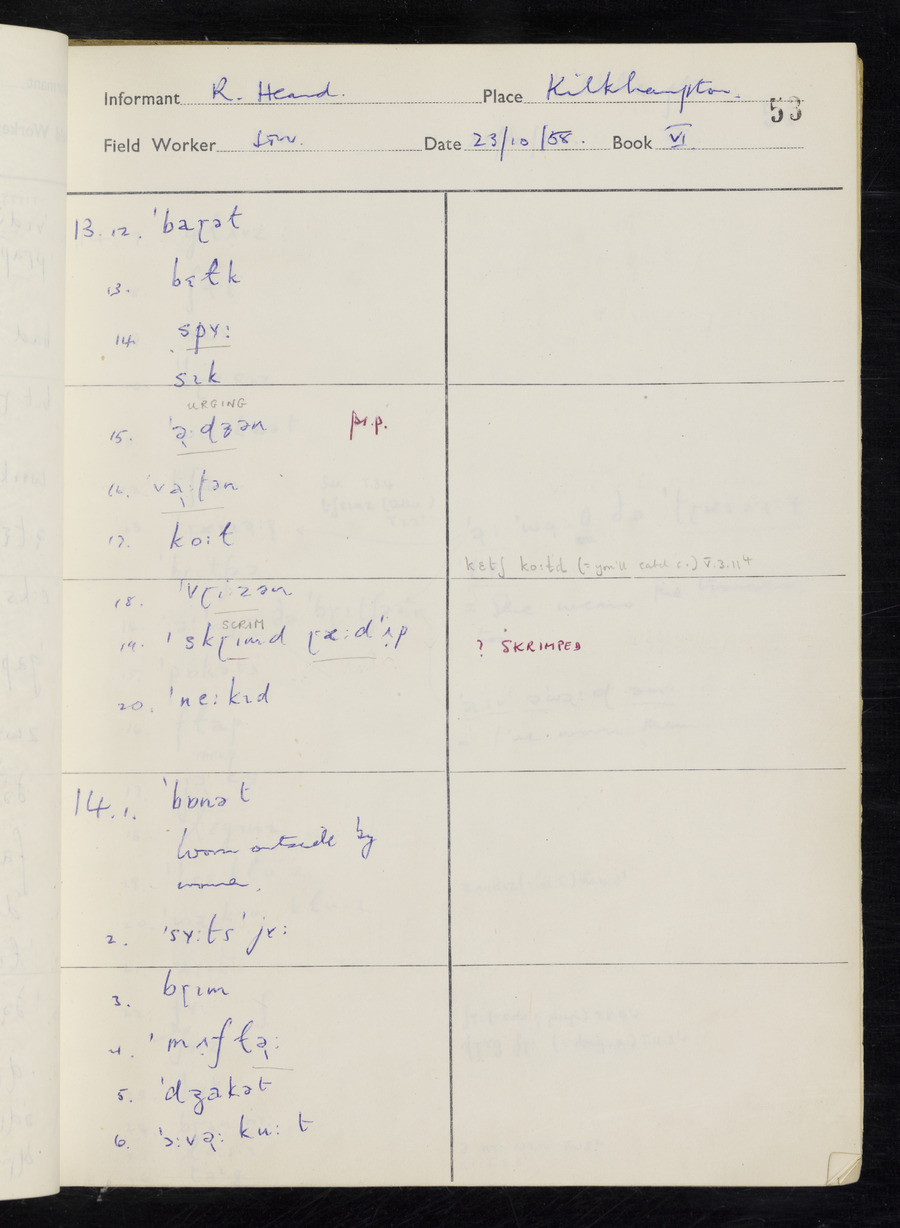 Informant R. Heard. Place Kilkhampton. 53
Field Worker Date 23/10/58. Book VI
13. 12. ˈbaɽət
13. bɛtk
14. spʏ:
sɪk
URGING
15. ˈə̣:dʒən pr.p.
16. ˈvə̣:ʃən
17. ko:t
kɛtʃ ko:td (= you'll catch c.) V.2.11⁴
18. ˈvɽi:zən
SCRIM
19. ˈskɽɪmd ɽæ:dˈʌp ? SKRIMPED
20. ˈne:kɪd
14. 1. ˈbɒnət
worn outside by
women.
2. ˈsʏ:ts ˈjʏ:
3. bɽɪm
4. ˈmʌftə̣:
5. ˈdʒakət
6. ˈɔ:və̣: ku: t